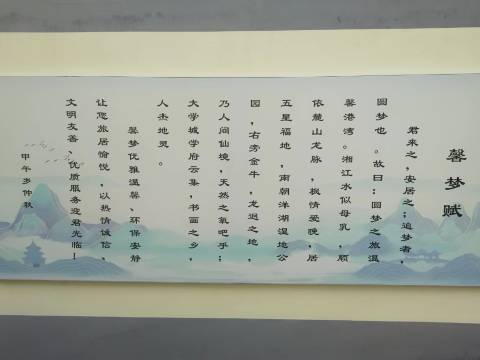 馨梦赋
君来之，安居之；追梦者，
圆梦也。故曰：圆梦之旅温
馨港湾。湘江水似母乳，顾
依麓山龙脉，枫情爱晚，居
五星福地，南朝洋湖湿地公
园，右旁金牛，龙迴之地，
乃人间仙境，天然之氧吧乎；
大学城学府云集，书画之乡，
人杰地灵。
馨梦优雅温馨、环保安静
让您旅居愉悦，以热情诚信、
文明友善、优质服务迎君光临！
甲午岁仲秋